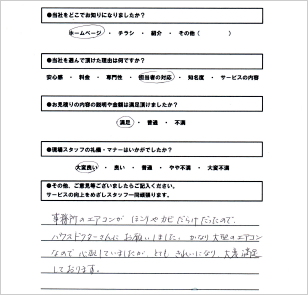 ●当社をどこでお知りになりましたか？
ホームページ ・ チラシ ・ 紹介 ・ その他（　　　）
●当社を選んで頂けた理由は何ですか？
安心感 ・ 料金 ・ 専門性 ・ 担当者の対応 ・ 知名度 ・ サービスの内容
●お見積りの内容の説明や金額は満足頂けましたか？
満足 ・ 普通 ・ 不満
●現場スタッフの礼儀・マナーはいかがでしたか？
大変良い ・ 良い ・ 普通 ・ やや不満 ・ 大変不満
●その他、ご意見等ございましたらご記入ください。
サービスの向上をめざしスタッフ一同頑張ります。
事務所のエアコンが ほこりやカビだらけだったので、
ハウスドクターさんに お願いしました。かなり大型のエアコン
なので 心配していましたが、とても きれいになり、大変満足
しております。